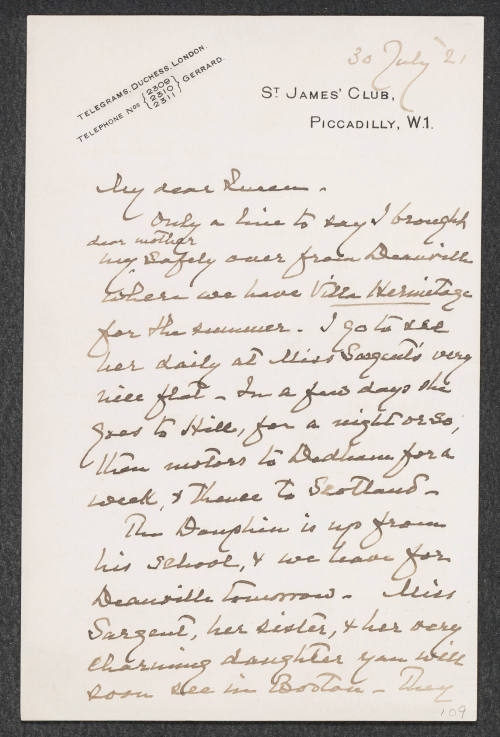 30 July 21
TELEGRAMS, DUCHESS, LONDON.
TELEPHONE Nos {2309 2310 2311} GERRARD.
ST JAMES' CLUB,
PICCADILLY, W.1.
My dear Queen -
Only a line to say I brought
dear mother
my safely over from Deauville
where we have Villa Hermitage
for the summer. I go to see
her daily at Miss Sargent's very
nice flat - In a few days she
goes to Hill, for a night or so,
then motors to Dedham for a
week, & thence to Scotland -
The Dauphin is up from
his school, & we leave for
Deauville tomorrow. Miss
Sargent, her sister, & her very
charming daughter you will
soon see in Boston - They
109